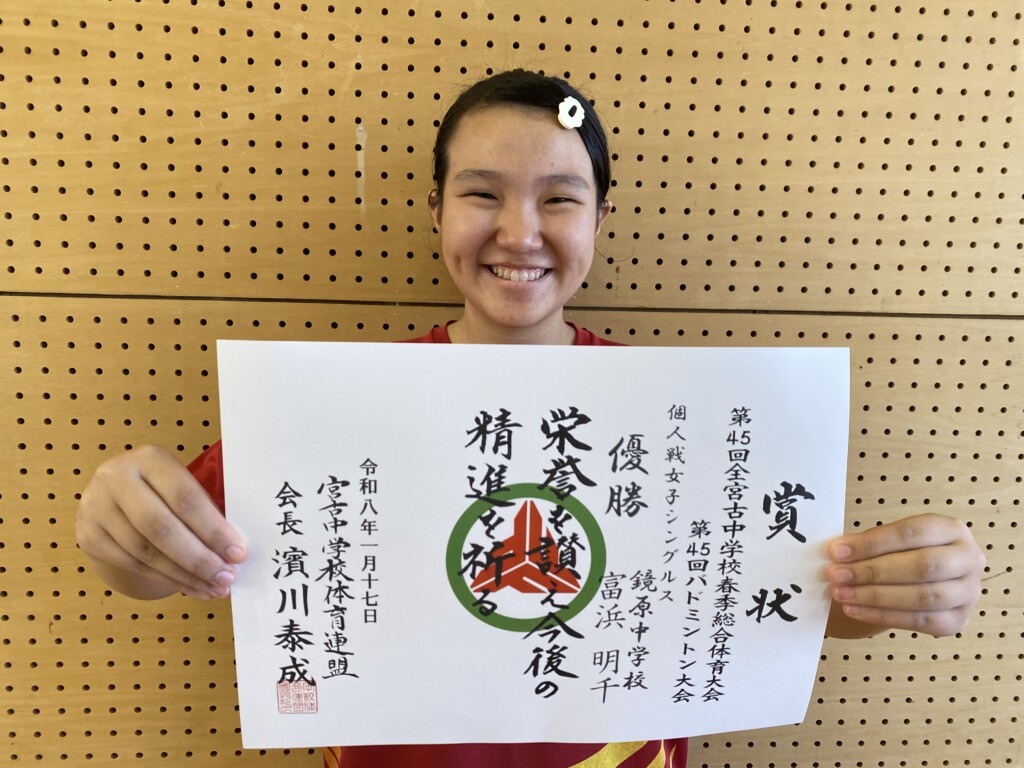 賞状
第45回全宮古中学校春季総合体育大会
第45回バドミントン大会
個人戦女子シングルス
優勝
鏡原中学校
富浜 明千
栄誉を讃え今後の
精進を祈る
令和八年一月十七日
宮古中学校体育連盟
会長 濱川泰成